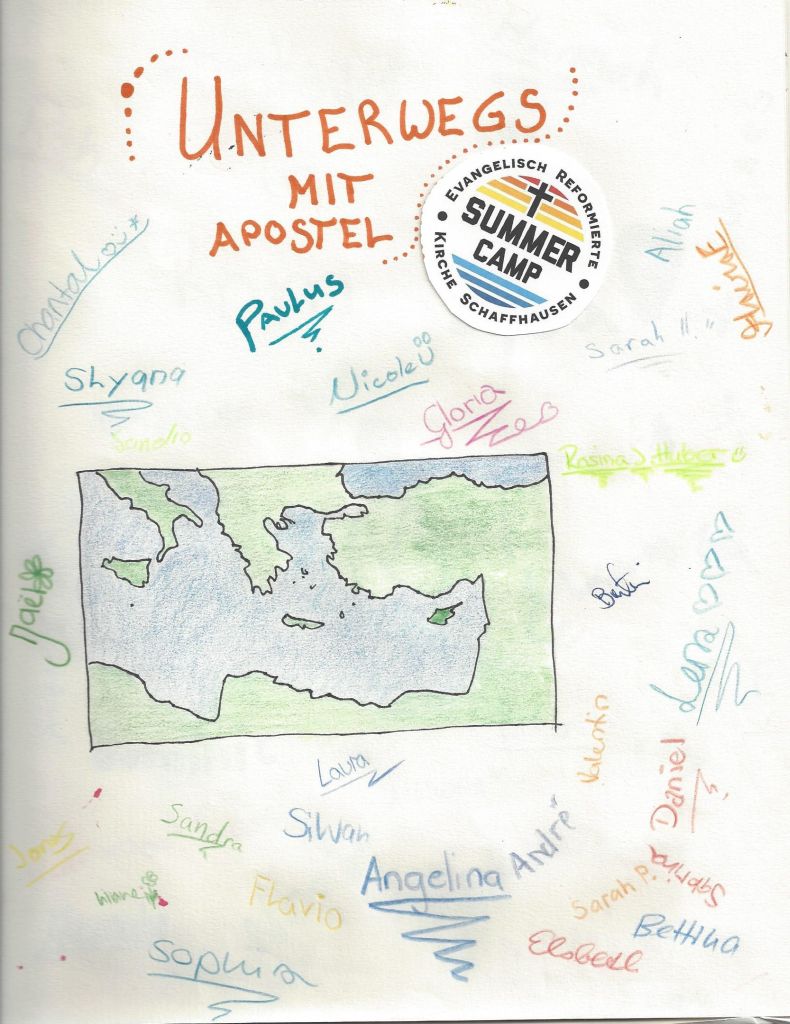 UNTERWEGS
MIT
APOSTEL
PAULUS
EVANGELISCH REFORMIERTE
SUMMER
CAMP
KIRCHE SCHAFFHAUSEN
Chantal
Aliah
Sarah H.
Shyana
Nicole
Gloria
Sandro
Rosina J. Huber
Lena
Valentin
Daniel
Laura
Silvan
Sandra
André
Angelina
Jonas
Flavio
Sabrina
Sarah P.
Bettina
Elsbeth
Sophia